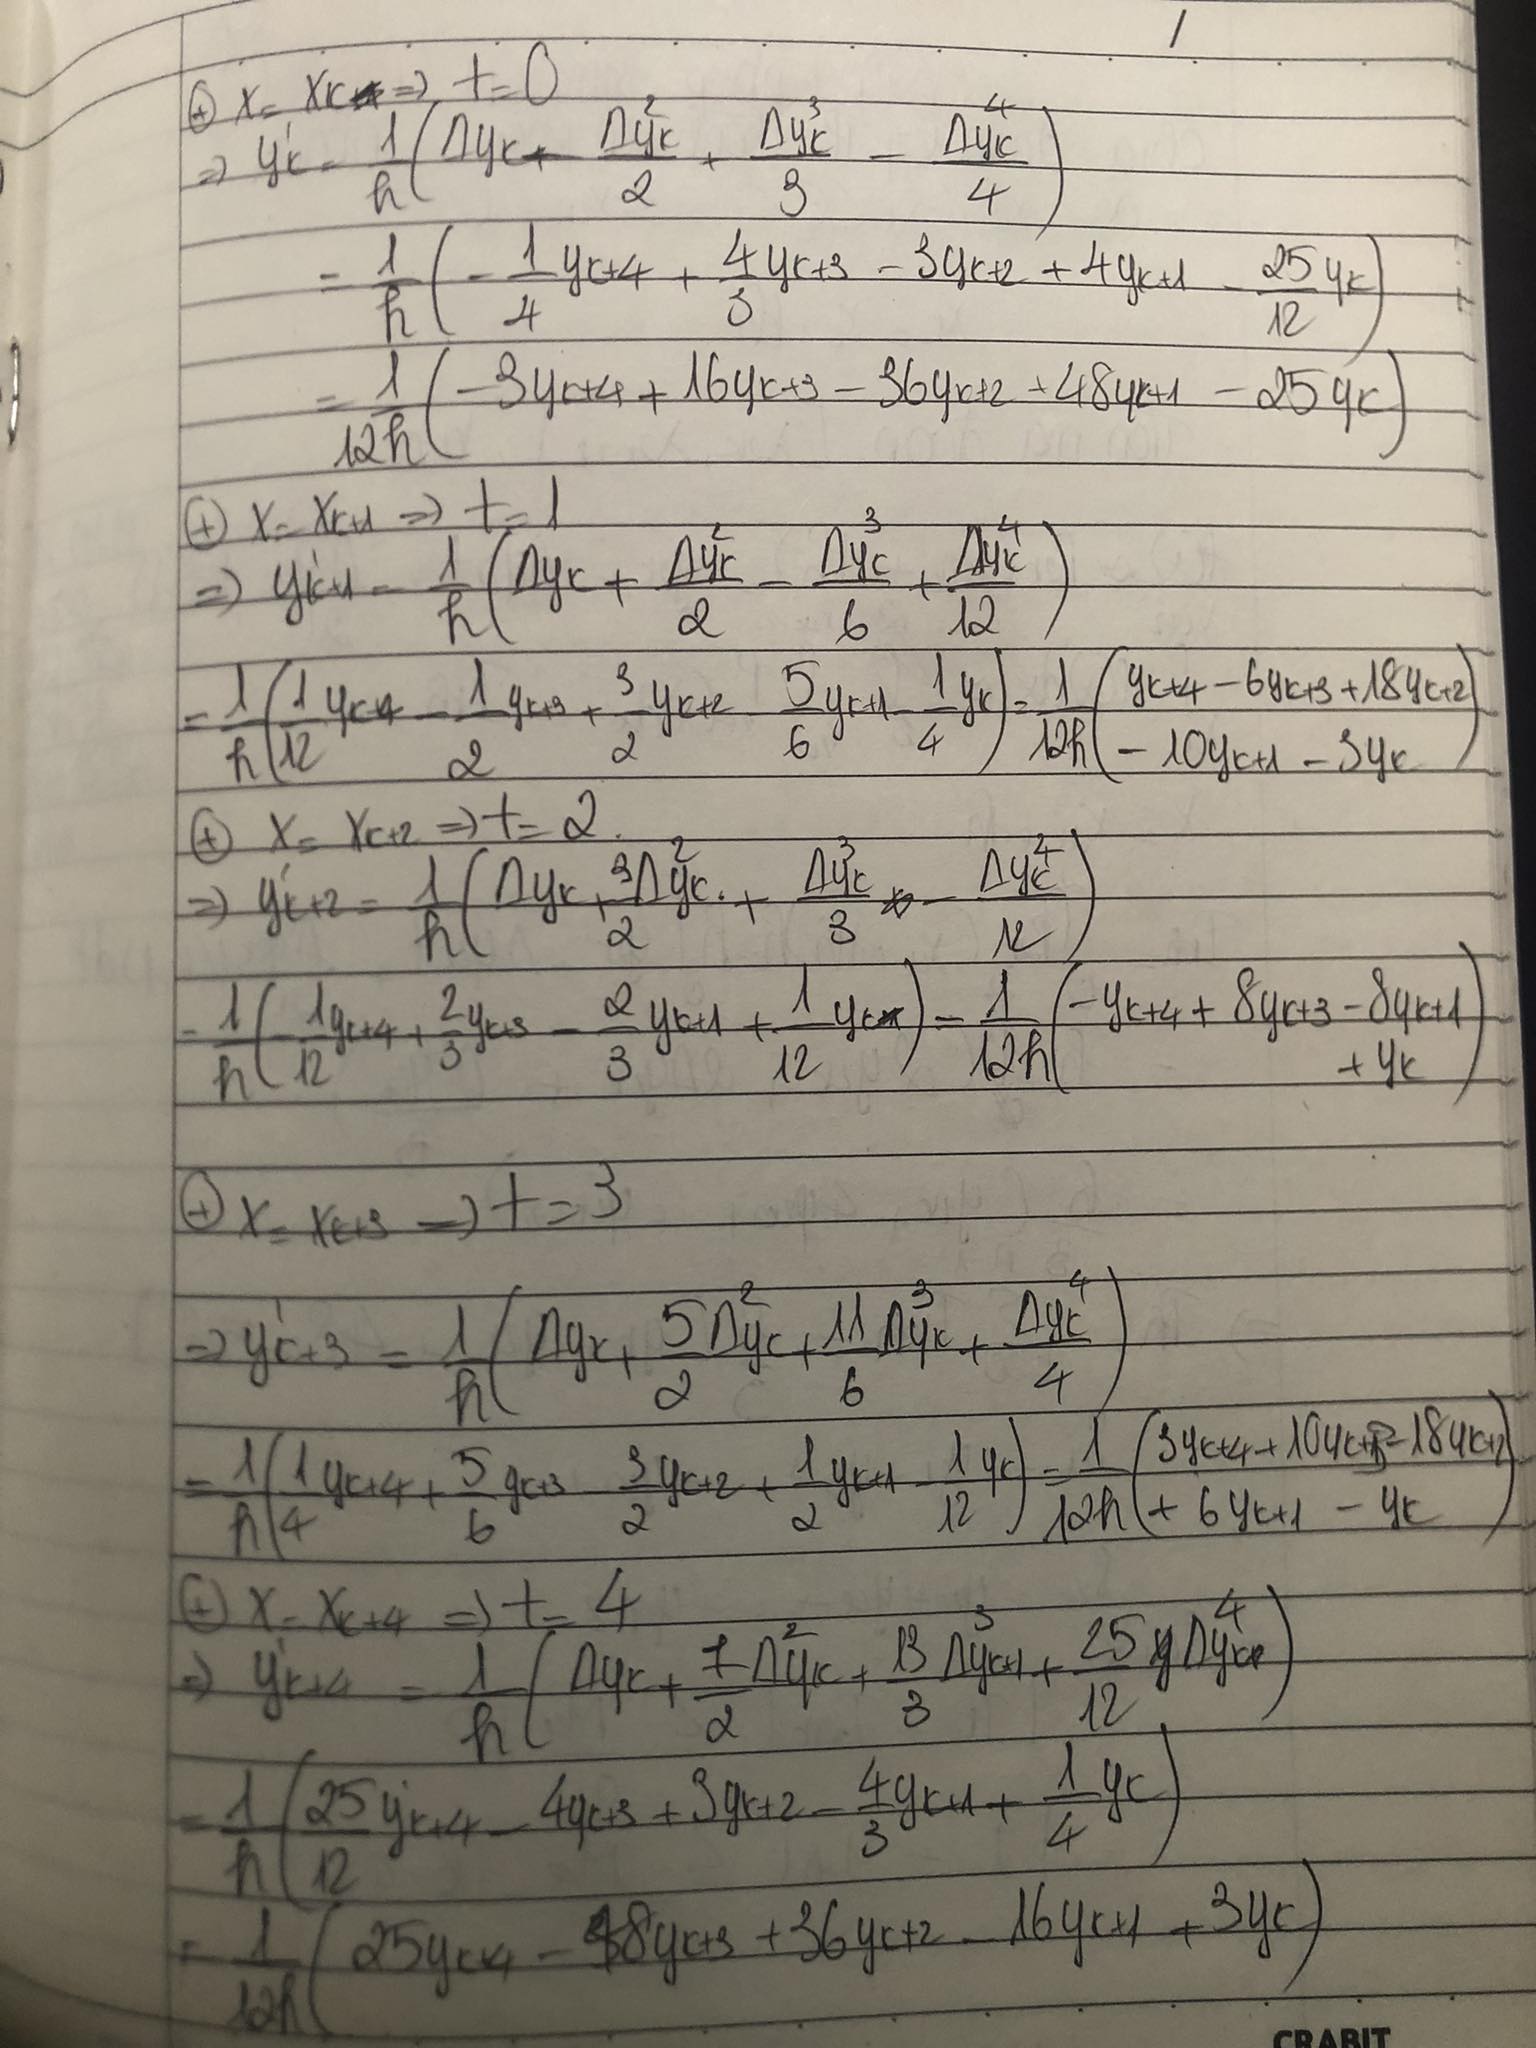 ⊕ x = xk => t = 0
=> y'k = 1/h (Δyk - Δ²yk/2 + Δ³yk/3 - Δ⁴yk/4)
= 1/h (-1/4 yk+4 + 4/3 yk+3 - 3yk+2 + 4yk+1 - 25/12 yk)
= 1/12h (-3yk+4 + 16yk+3 - 36yk+2 + 48yk+1 - 25yk)
⊕ x = xk+1 => t = 1
=> y'k+1 = 1/h (Δyk + Δ²yk/2 - Δ³yk/6 + Δ⁴yk/12)
= 1/h (1/12 yk+4 - 1/2 yk+3 + 3/2 yk+2 - 5/6 yk+1 - 1/4 yk) = 1/12h (yk+4 - 6yk+3 + 18yk+2 - 10yk+1 - 3yk)
⊕ x = xk+2 => t = 2.
=> y'k+2 = 1/h (Δyk + 3/2 Δ²yk + Δ³yk/3 - Δ⁴yk/12)
= 1/h (-1/12 yk+4 + 2/3 yk+3 - 2/3 yk+1 + 1/12 yk) = 1/12h (-yk+4 + 8yk+3 - 8yk+1 + yk)
⊕ x = xk+3 => t = 3
=> y'k+3 = 1/h (Δyk + 5/2 Δ²yk + 11/6 Δ³yk + Δ⁴yk/4)
= 1/h (1/4 yk+4 + 5/6 yk+3 - 3/2 yk+2 + 1/2 yk+1 - 1/12 yk) = 1/12h (3yk+4 + 10yk+3 - 18yk+2 + 6yk+1 - yk)
⊕ x = xk+4 => t = 4
=> y'k+4 = 1/h (Δyk + 7/2 Δ²yk + 13/3 Δ³yk+1 + 25/12 Δ⁴yk)
= 1/h (25/12 yk+4 - 4yk+3 + 3yk+2 - 4/3 yk+1 + 1/4 yk)
= 1/12h (25yk+4 - 48yk+3 + 36yk+2 - 16yk+1 + 3yk)
CRABIT